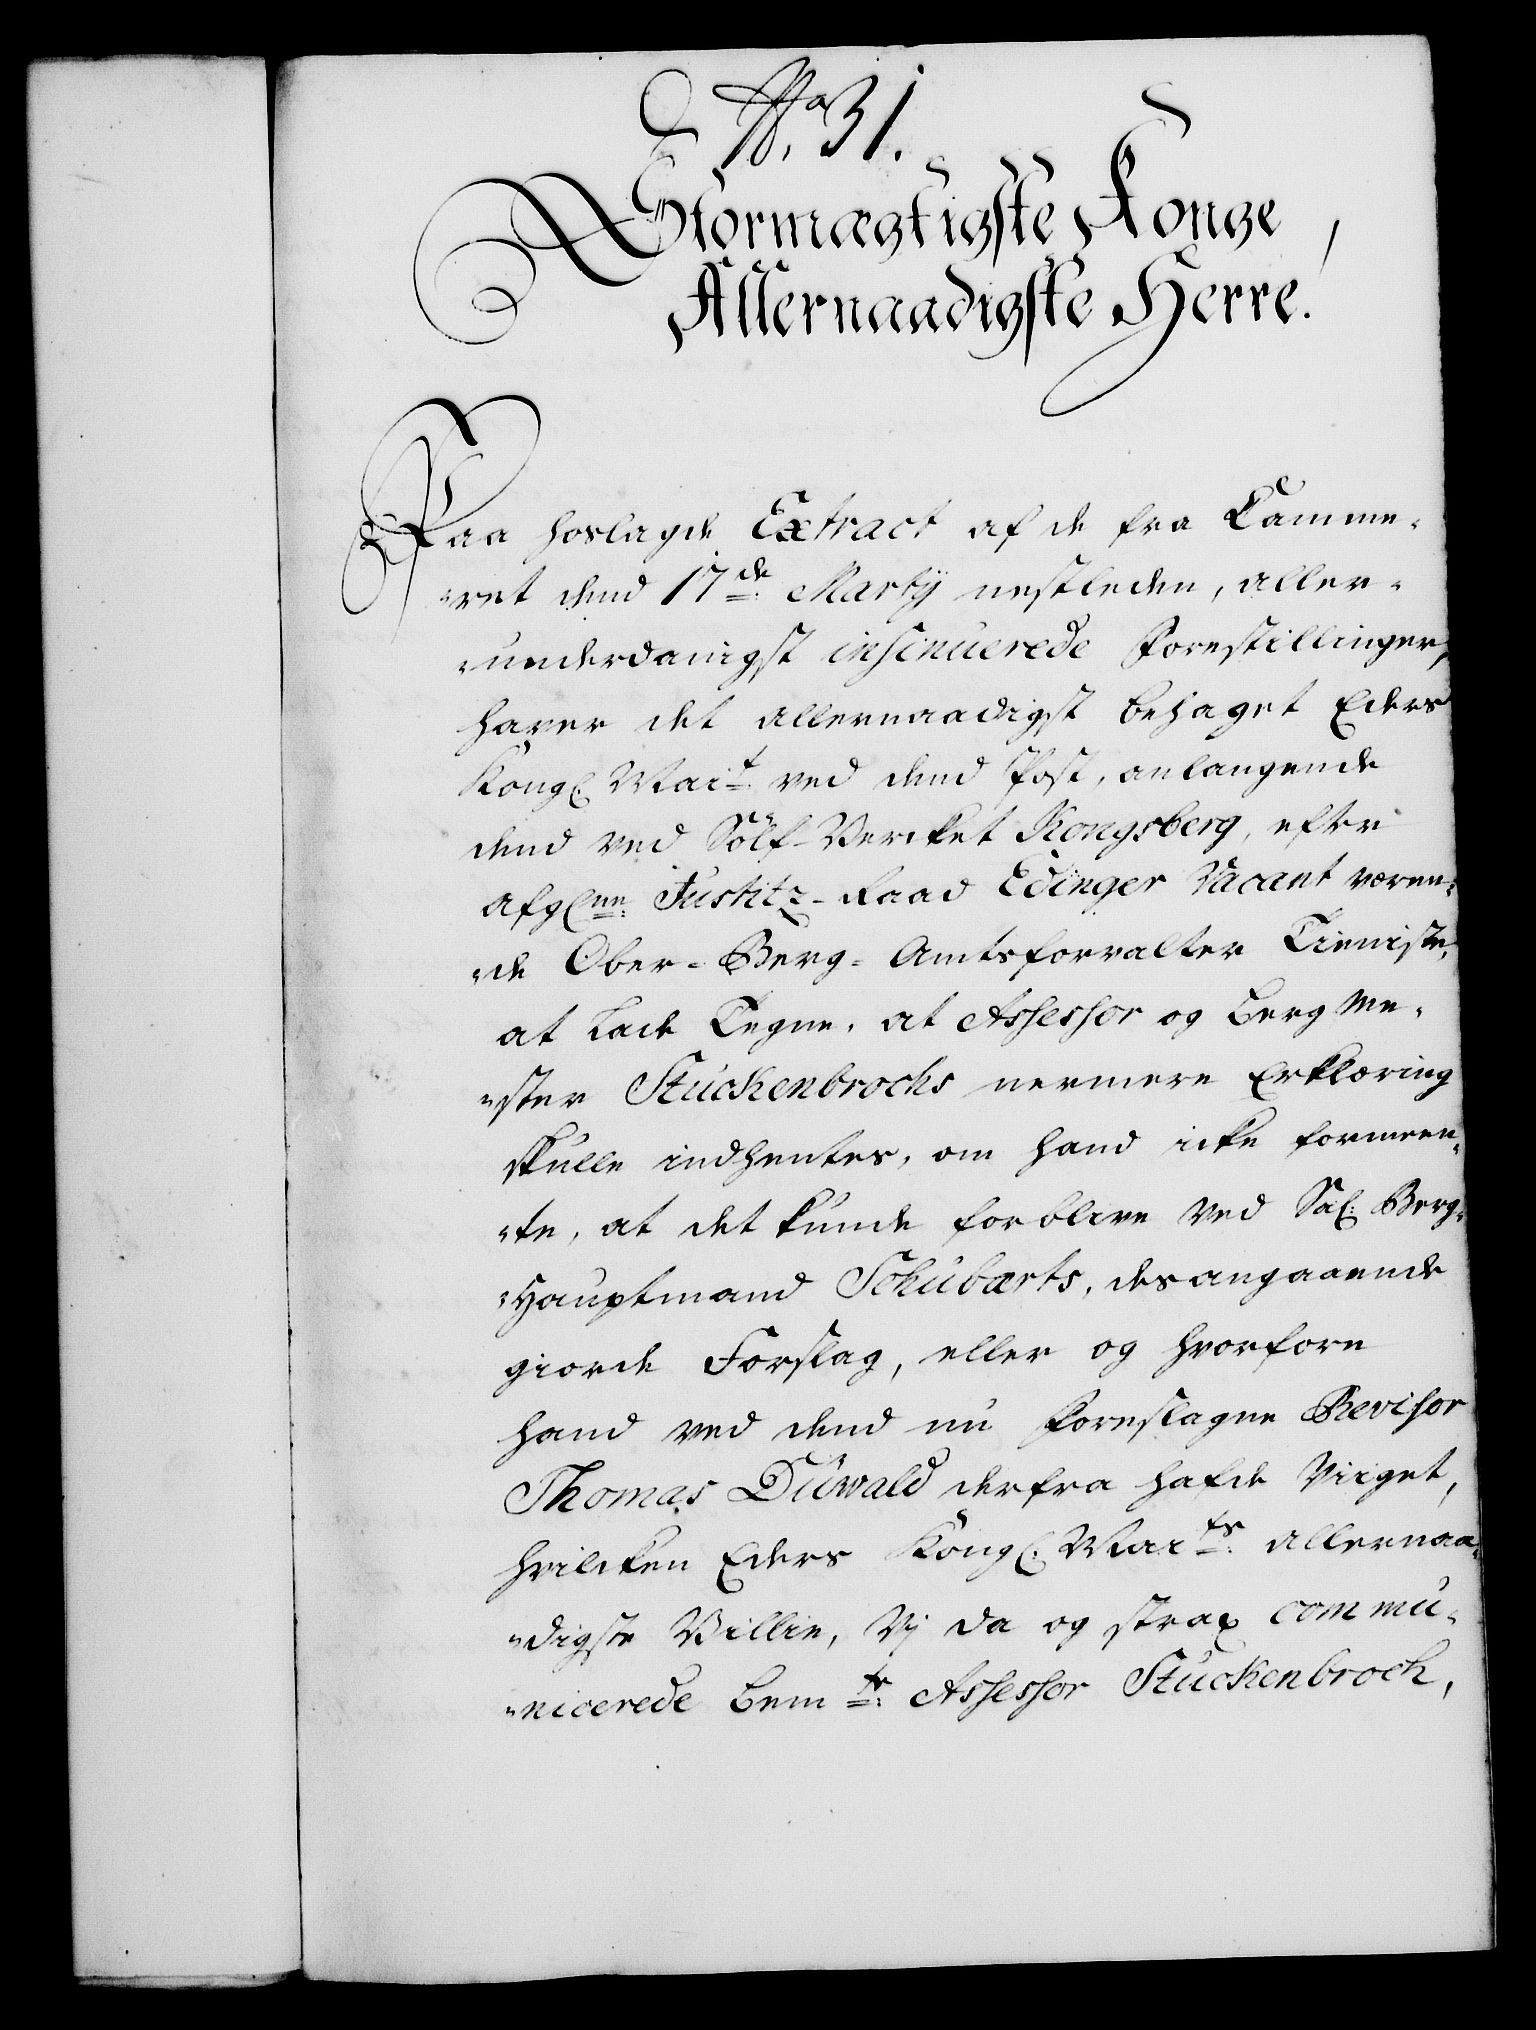 No. 31.
Stormægtigste Konge,
Allernaadigste Herre.
Paa hoslagde Extract af de fra Camme-
"ret dend 17de Martij nestleden, aller-
"underdanigst insinuerede Forestillinger,
haver det allernaadigst behaget Eders
Kongl. Mait: ved dend Post, anlangende
dend ved Sölf-Vercket Kongsberg, efter
afglnn: Justitz-Raad Edinger Vacant væren-
"de Ober-Berg-Amtsforvalter Tieniste,
at lade Tegne, at Assessor og Berg Me-
"ster Stuckenbrocks nermere Erklæring
skulle indhentes, om hand icke formeen-
"te, at det kunde forblive ved Sal: Berg-
"Hauptmand Schubærts, desangaaende
giorde Forslag, eller og hvorfore
hand ved dend nu Foreslagne Revisor
Thomas Düwald derfra hafde Viiget,
hvilcken Eders Kongl: Maits: allernaa-
"digste Villie, Vj da og strax commu-
"nicerede bemte: Assessor Stuckenbrock,